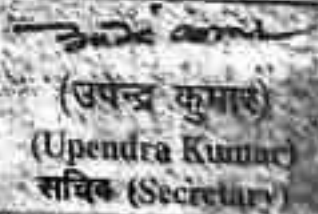 (उपेन्द्र कुमार)
(Upendra Kumar)
सचिव (Secretary)